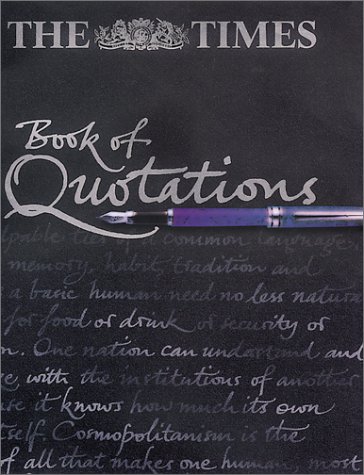 THE TIMES
Book of
Quotations
palpable ties is a common language
memory, habit, tradition and
a basic human need no less natur
for food or drink or security or
n. One nation can understand and
e, with the institutions of another
se it knows how much its own
tself. Cosmopolitanism is the
f all that makes one human, most